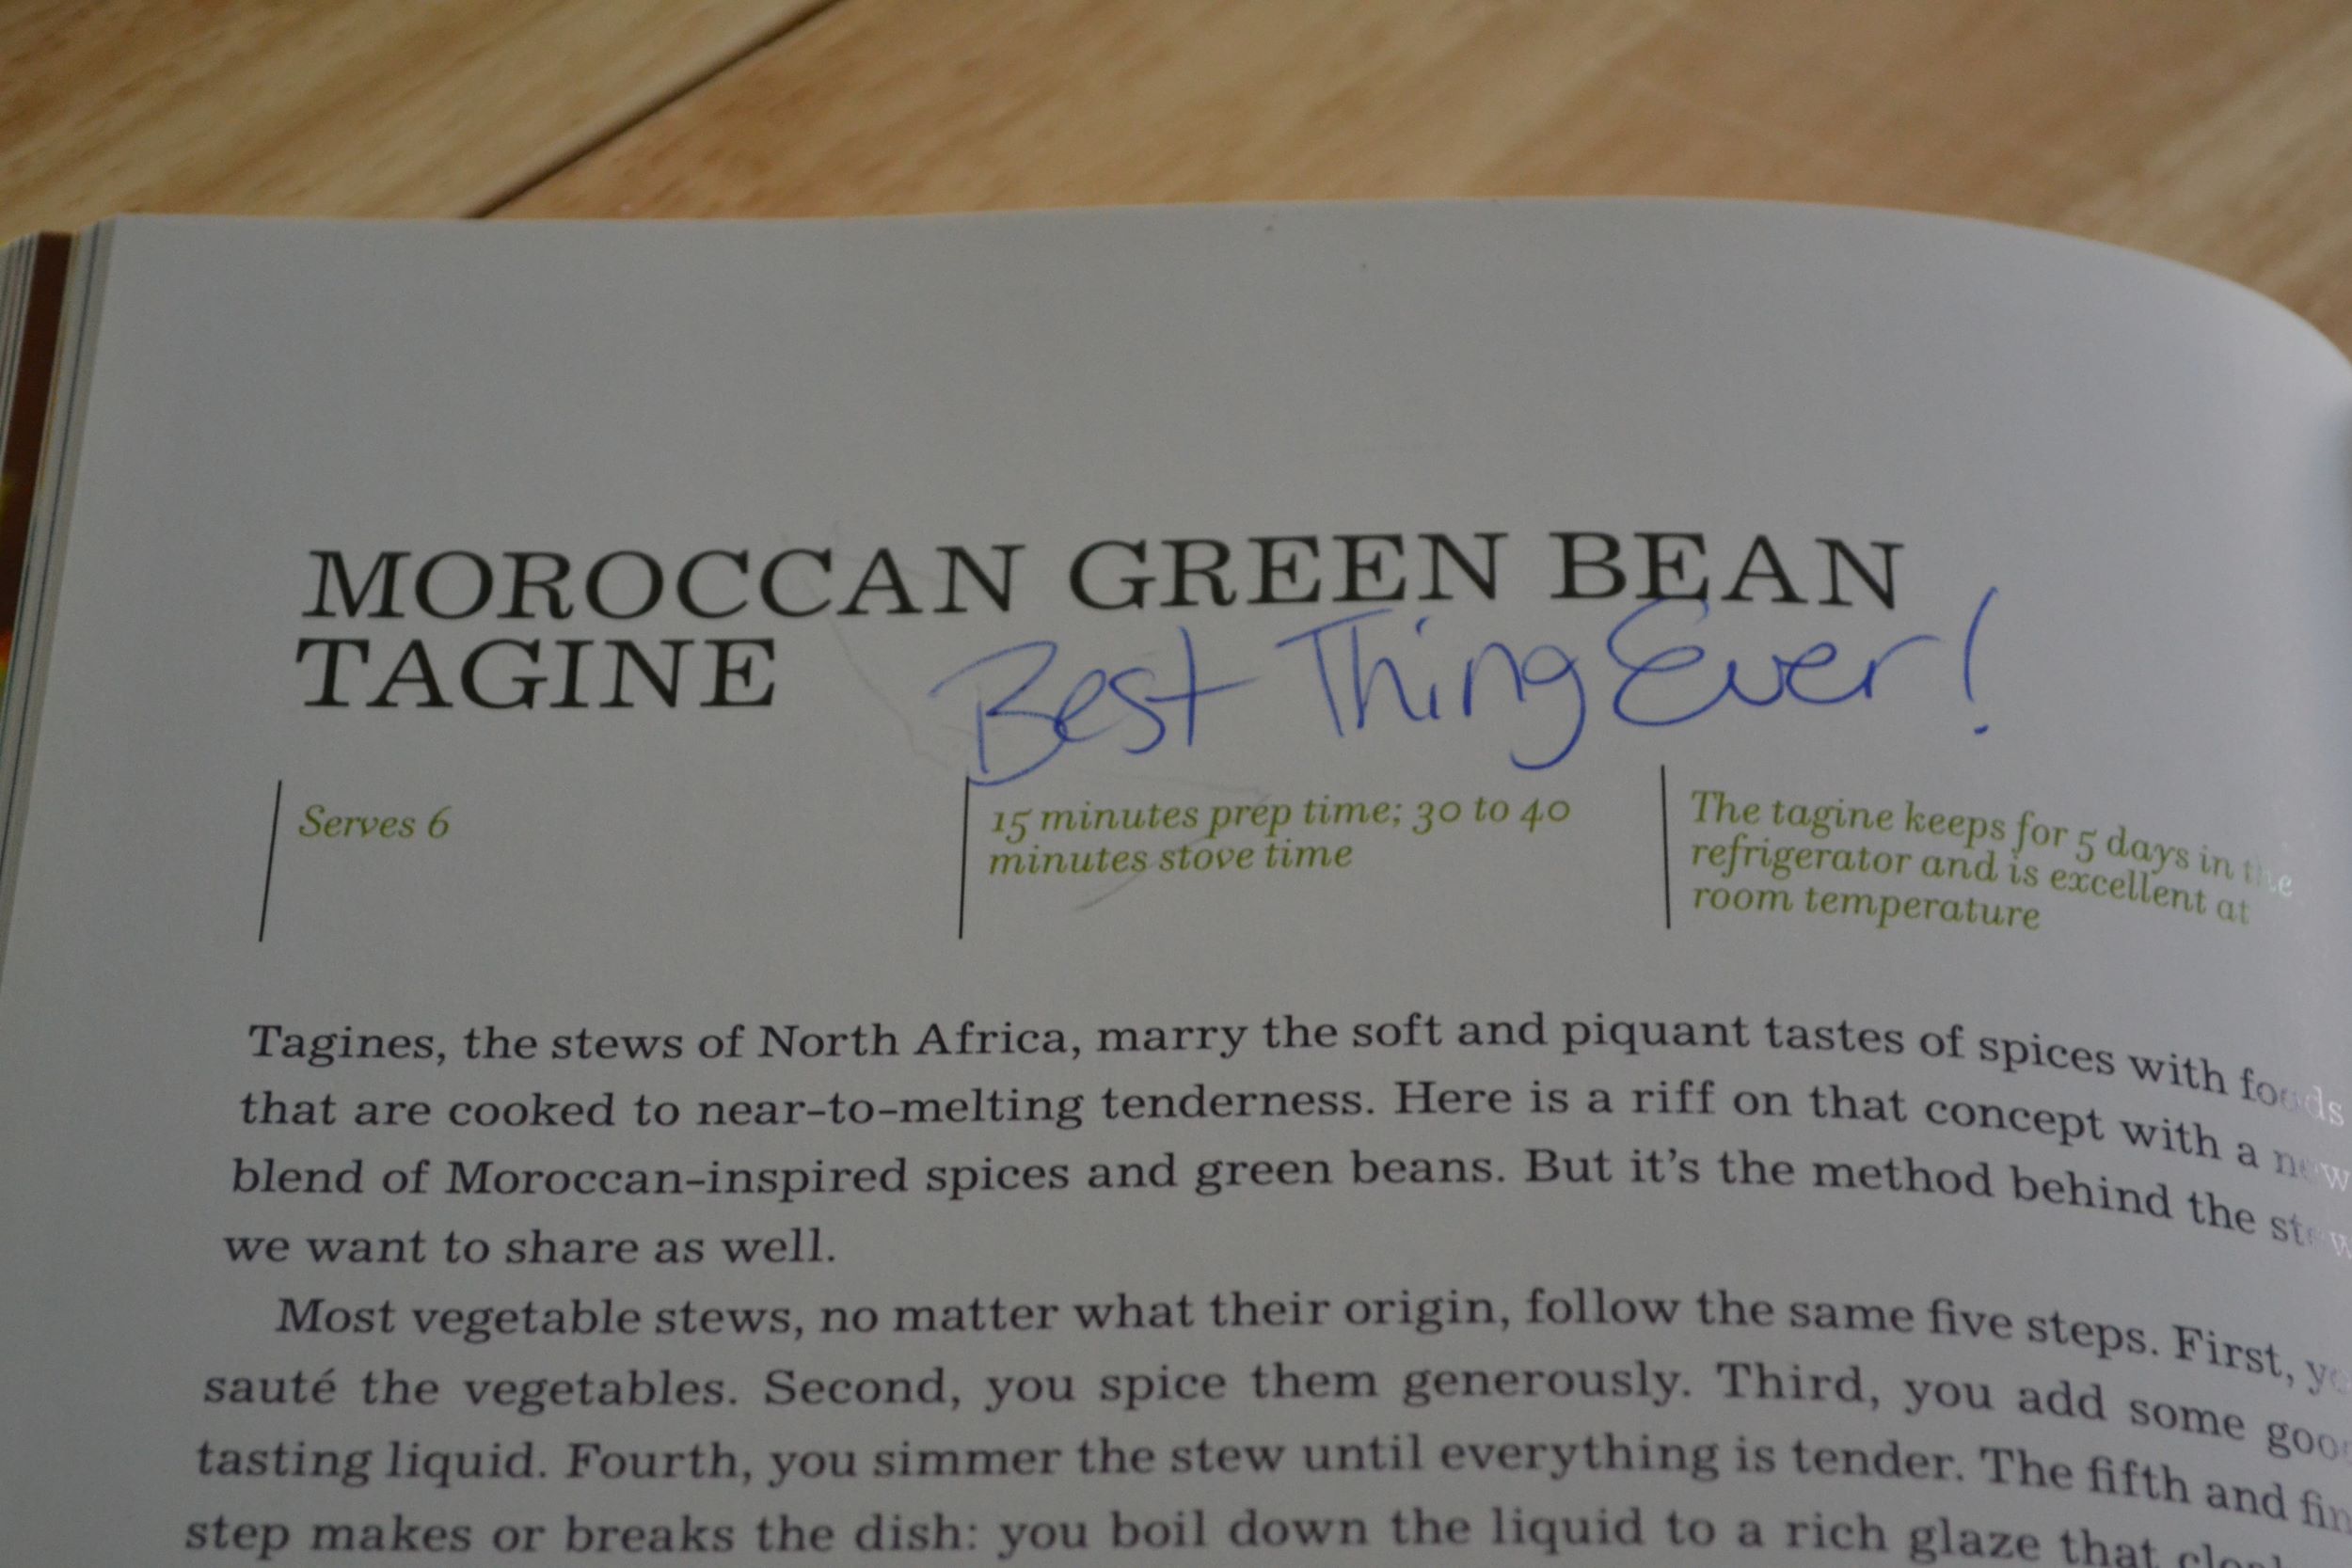 MOROCCAN GREEN BEAN
TAGINE
Best Thing Ever!
Serves 6
15 minutes prep time; 30 to 40
minutes stove time
The tagine keeps for 5 days in the
refrigerator and is excellent at
room temperature
Tagines, the stews of North Africa, marry the soft and piquant tastes of spices with foods
that are cooked to near-to-melting tenderness. Here is a riff on that concept with a new
blend of Moroccan-inspired spices and green beans. But it's the method behind the stew
we want to share as well.
Most vegetable stews, no matter what their origin, follow the same five steps. First,
sauté the vegetables. Second, you spice them generously. Third, you add some
tasting liquid. Fourth, you simmer the stew until everything is tender. The fifth and
step makes or breaks the dish: you boil down the liquid to a rich glaze that